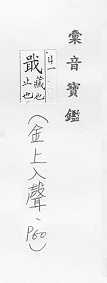 彙音寶鑑
ㄐ一
戢
藏也
止也
(金上入聲、P60)